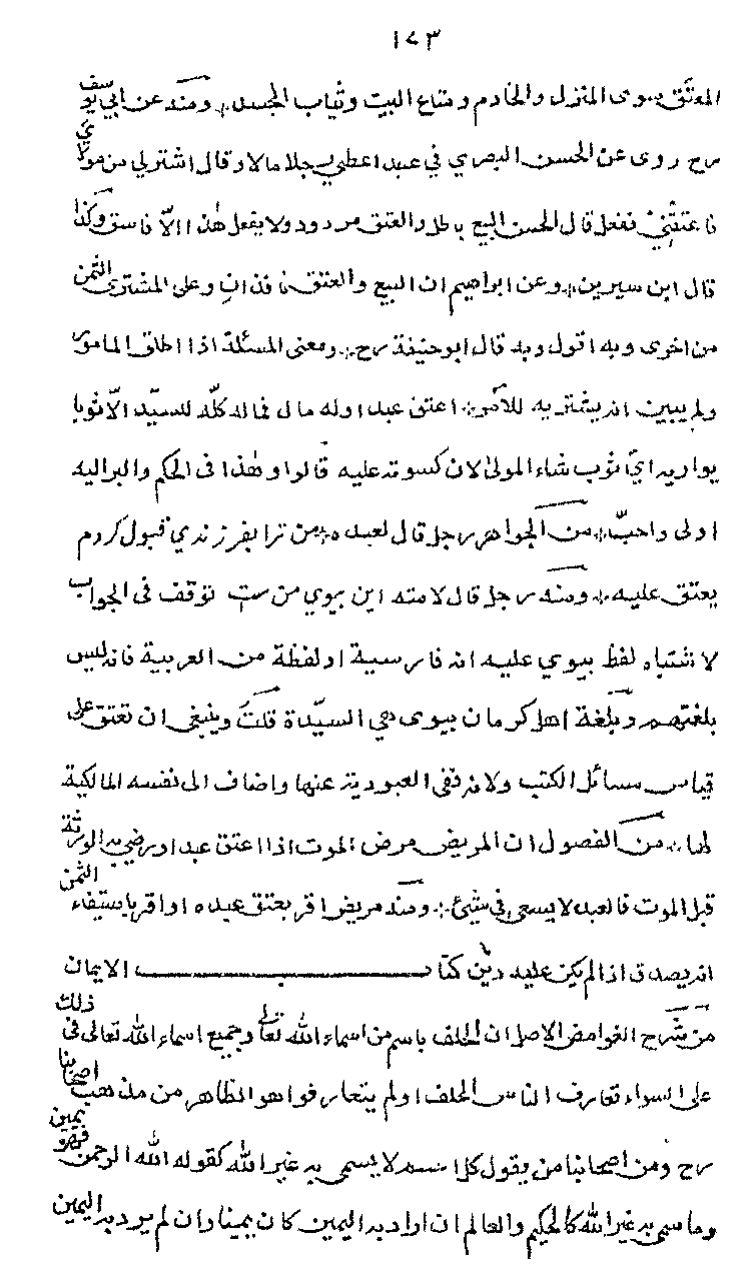 ١٧٣
المعتق سوى المنزل والخادم ومتاع البيت وثياب الجسد ومنه عن ابي يوسف
رح روى عن الحسن البصري في عبد اعطى رجلا مالا وقال اشترني من مولاي
فاعتقني ففعل قال الحسن البيع باطل والعتق مردود ولا يفعل هذا الّا فاسق وكذا
قال ابن سيرين وعن ابراهيم ان البيع والعتق نافذان وعلى المشتري الثمن
من اخرى وبه اقول وبه قال ابو حنيفة رح ومعنى المسئلة اذا اطلق المامور
ولم يبين انه يشتريه للآمر اعتق عبدا وله مال فماله كلّه للسيّد الّا ثوبا
يواريه ايّ ثوب شاء المولى لان كسوته عليه قالوا وهذا فى الحكم والبر اليه
اولى واحبّ من الجواهر رجل قال لعبده من ترا بفرزندي قبول كردم
يعتق عليه ومنه رجل قال لامته اين بيوي من ست توقف فى الجواب
لاشتباه لفظ بيوي عليه انه فارسية او لفظة من العربية فانه ليس
بلغتهم وبلغة اهل كرمان بيوى هي السيّدة قلت وينبغى ان تعتق على
قياس مسائل الكتب ولانه نفى العبودية عنها واضاف الى نفسه المالكية
لها من الفصول ان المريض مرض الموت اذا اعتق عبدا ورضي به الورثة
قبل الموت فالعبد لا يسعى في شيئ ومنه مريض اقر بعتق عبده او اقر باستيفاء الثمن
انه يصدق اذا لم يكن عليه دين كتاب الايمان
من شرح الغوامض الاصل ان الحلف باسم من اسماء الله تعالى وجميع اسماء الله تعالى فى ذلك
على السواء تعارف الناس الحلف او لم يتعارفوا هو الظاهر من مذهب اصحابنا
رح ومن اصحابنا من يقول كل اسم لا يسمى به غير الله كقوله الله الرحمن فهو يمين
وما سمى به غير الله كالحكيم والعالم ان اراد به اليمين كان يمينا وان لم يرد به اليمين